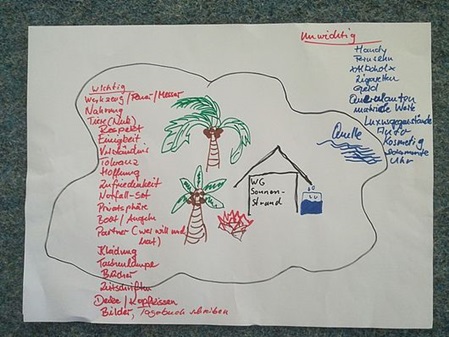 wichtig
Werkzeug/Feuer/Messer
Nahrung
Tiere (Nutz)
Respekt
Einigkeit
Verständnis
Toleranz
Hoffnung
Zufriedenheit
Notfall-Set
Privatsphäre
Boot/Angeln
Partner (wer will und
hat)
Kleidung
Taschenlampe
Bücher
Zeitschriften
Decke/Kopfkissen
Bilder, Tagebuch schreiben
WG
Sonnen-
Strand
Quelle
Unwichtig
Handy
Fernsehn
Alkohol
Zigaretten
Geld
materielle Werte
Luxusgegenstände
Auto
Kosmetik
Uhr